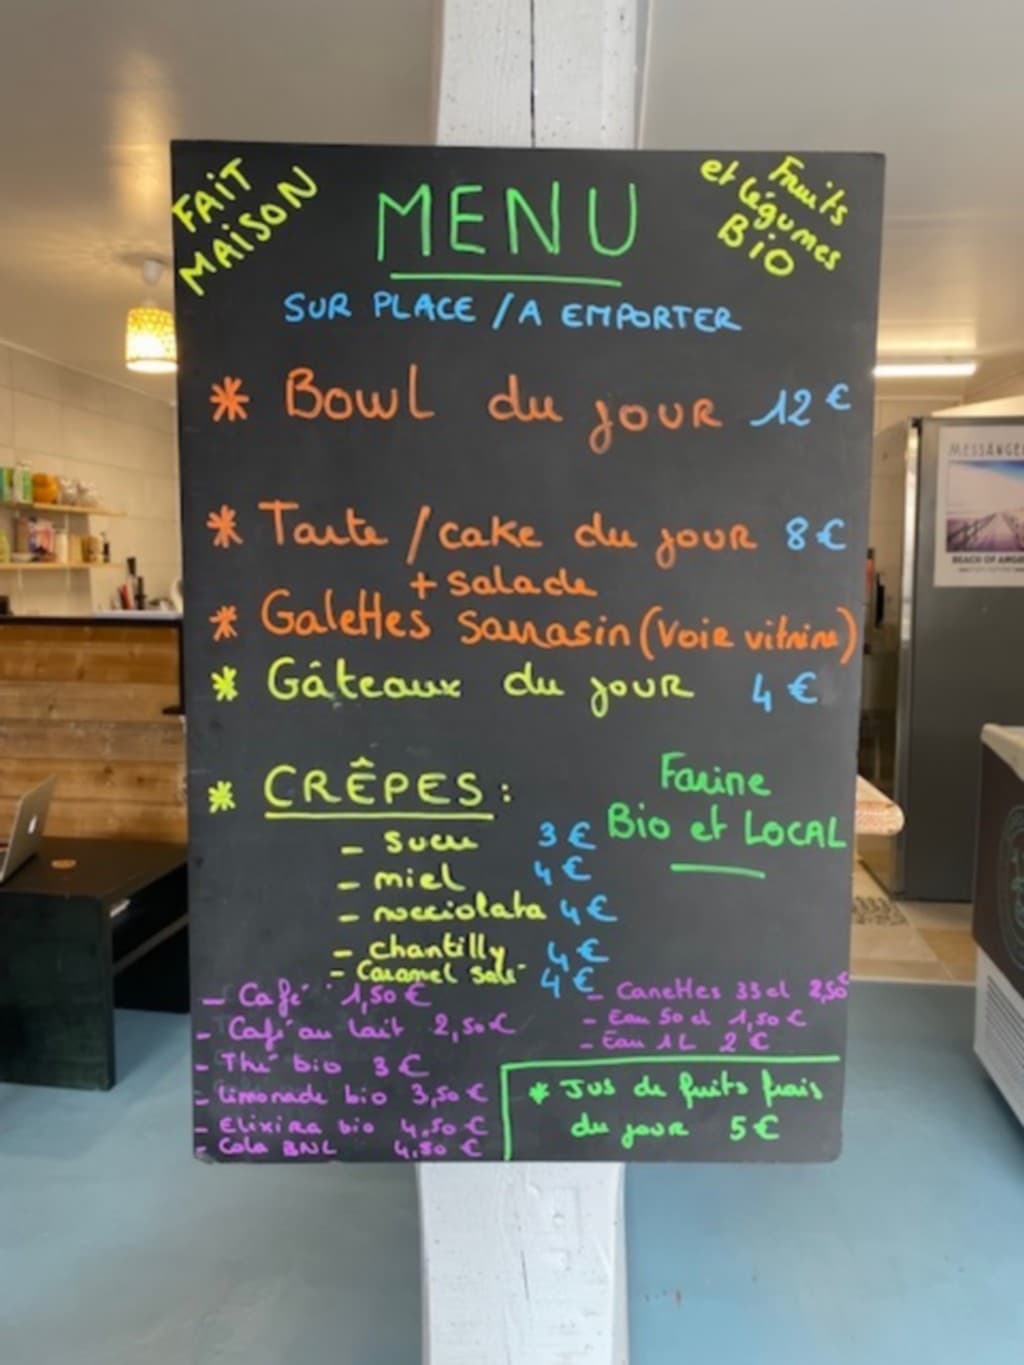 FAIT
MAISON
MENU
Fruits
et légumes
BiO
SUR PLACE / A EMPORTER
* Bowl du jour 12 €
* Tarte / cake du jour 8 €
+ salade
* Galettes sarrasin (voir vitrine)
* Gâteaux du jour 4 €
* CRÊPES :
Farine
Bio et LOCAL
- sucre 3 €
- miel 4 €
- nocciolata 4 €
- chantilly 4 €
- Caramel salé 4 €
- Café 1,50 €
- Café au lait 2,50 €
- Thé bio 3 €
- limonade bio 3,50 €
- Elixira bio 4,50 €
- Cola BNL 4,50 €
- Canettes 33 cl 2,50 €
- Eau 50 cl 1,50 €
- Eau 1L 2 €
* Jus de fruits frais
du jour 5 €
BEACH OF ANGE